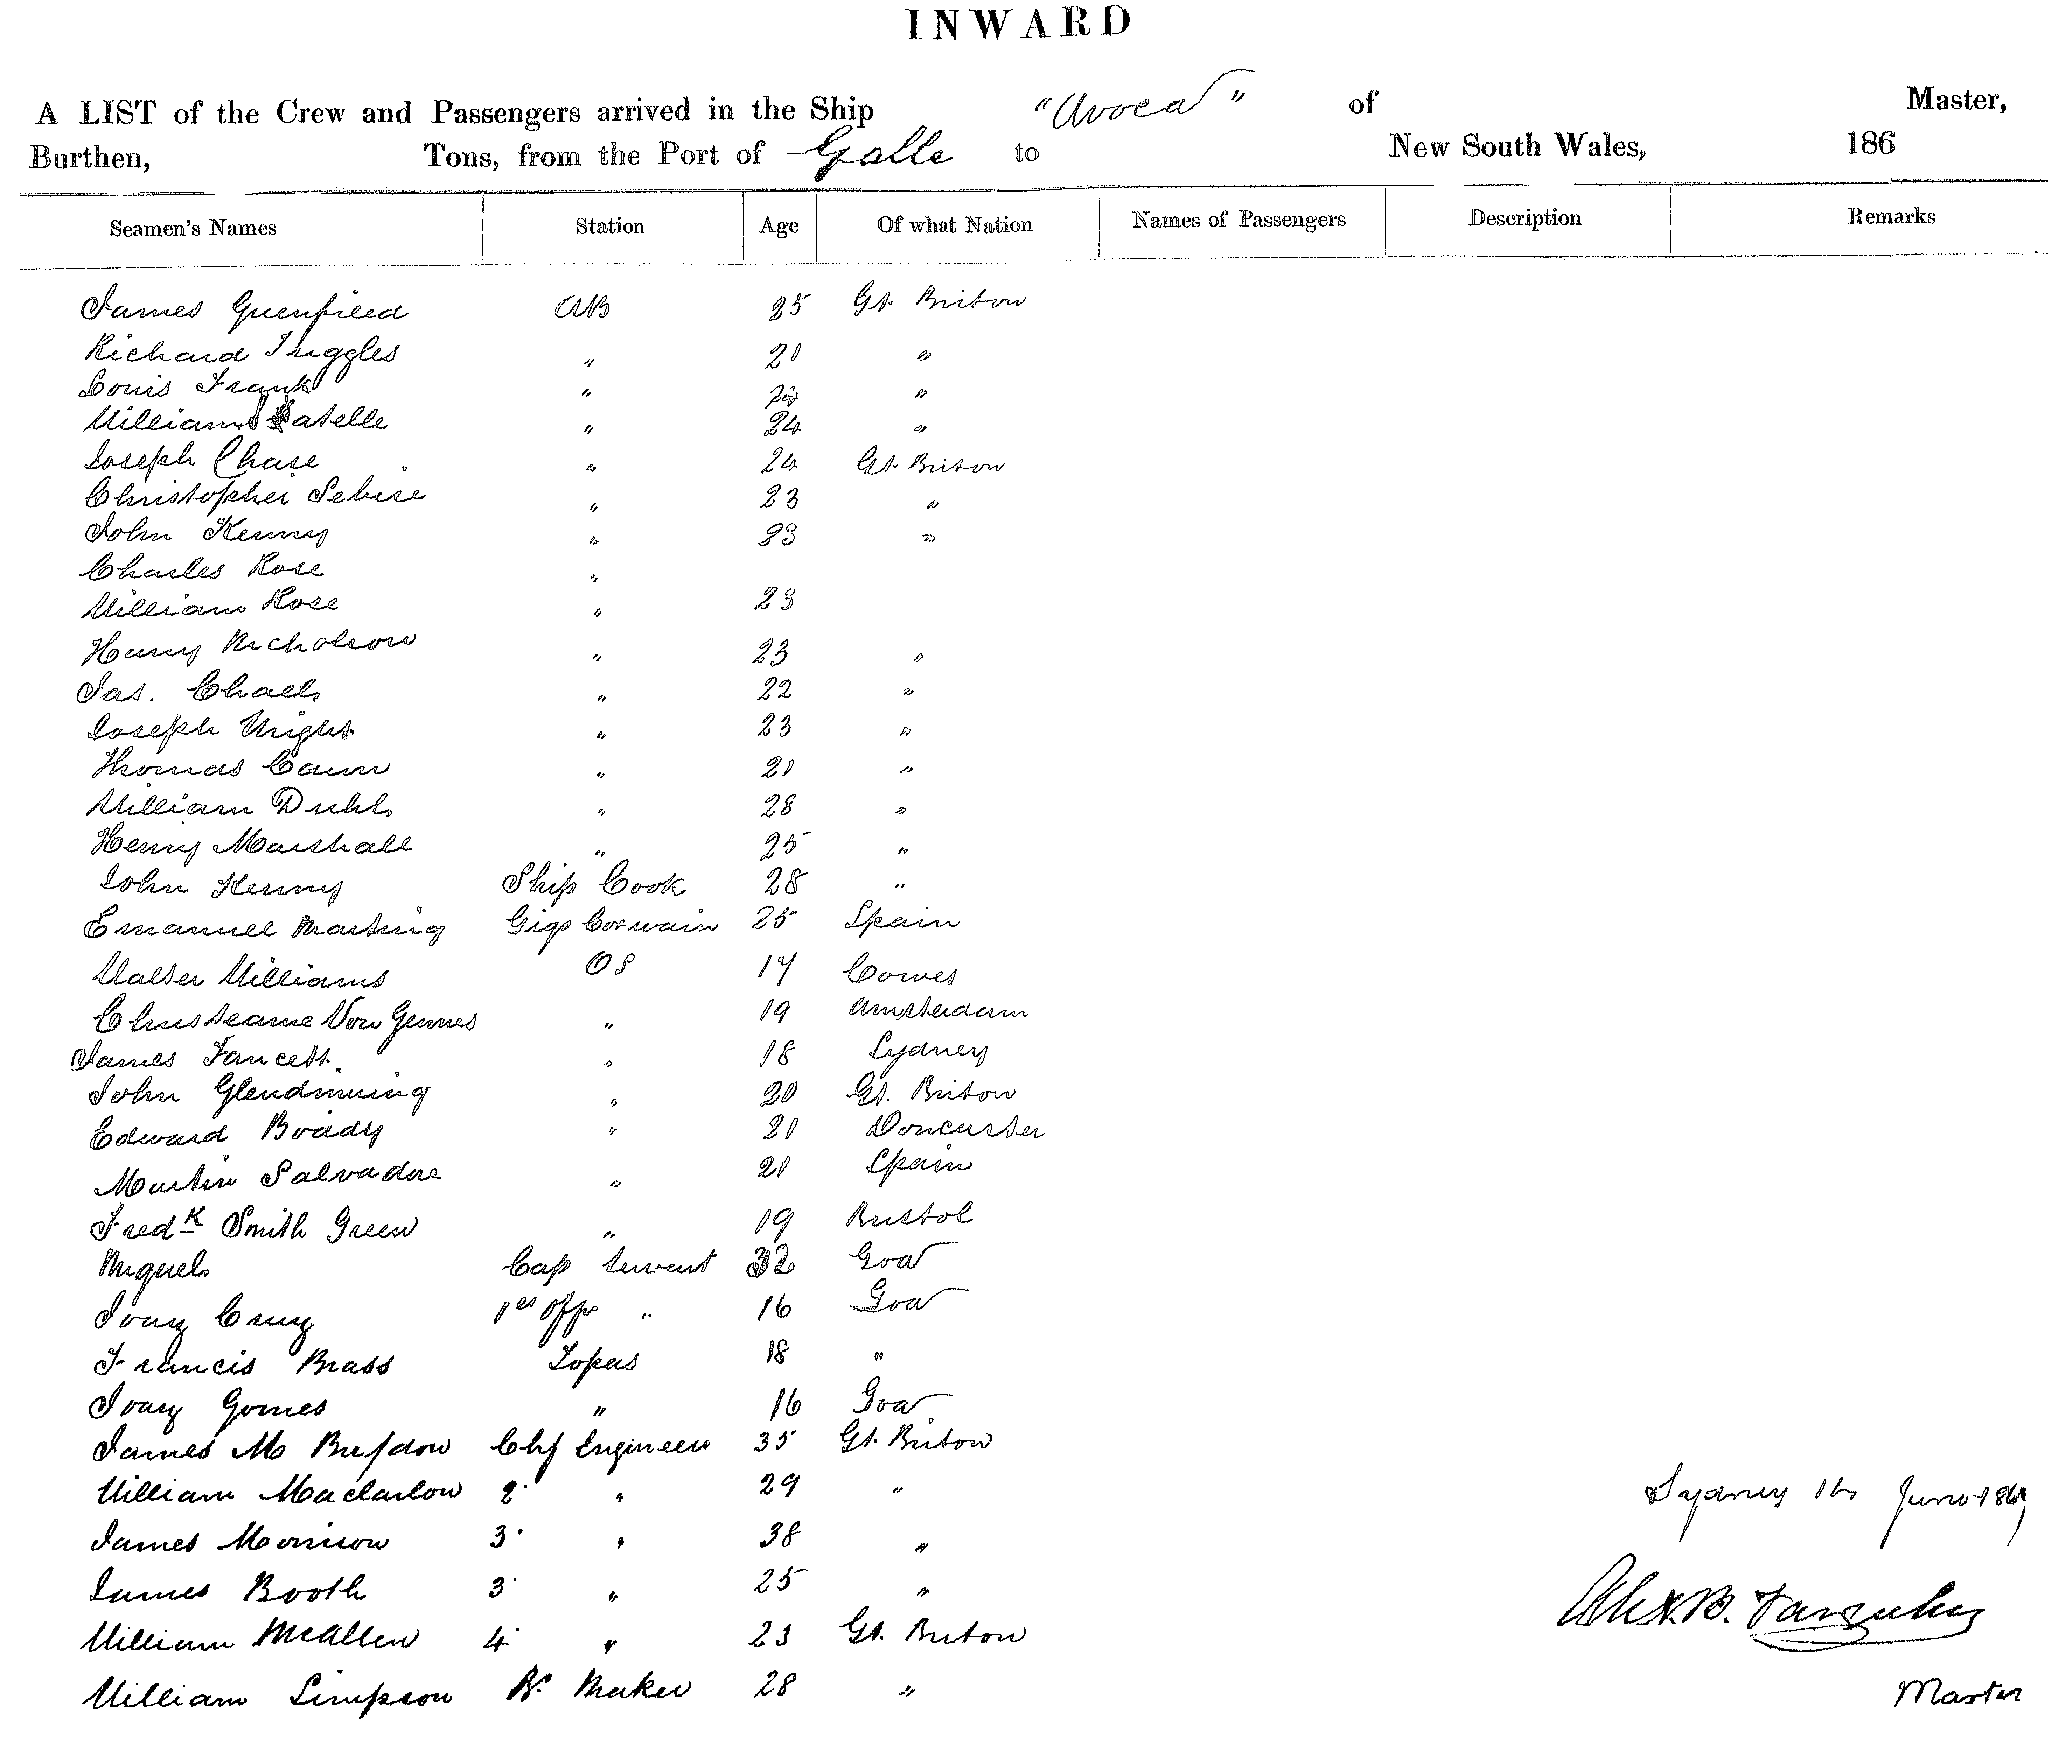 INWARD
A LIST of the Crew and Passengers arrived in the Ship "Avoca" of Master,
Burthen, Tons, from the Port of Galle to New South Wales, 186
Seamen's Names Station Age Of what Nation Names of Passengers Description Remarks
James Greenfield AB 25 Gt. Briton
Richard Triggles " 21 "
Louis Frank " "
William " 24 "
Joseph Chase " 24 Gt. Briton
Christopher " 23 "
John Kenny " 23 "
Charles Rose "
William Rose " 23
Henry Nicholson " 23 "
Jas. " 22 "
Joseph Wright " 23 "
Thomas " 21 "
William " 28 "
Henry Marshall " 25 "
John Kenny Ship Cook 28 "
Emanuel Gigs 25 Spain
Walter Williams OS 17 Cowes
Von " 19 Amsterdam
James Fancett " 18 Sydney
John Glendinning " 20 Gt. Briton
Edward " 21 Doncaster
Martin Salvadore " 21 Spain
Fredk Smith Green " 19 Bristol
Miguel Cap Servant 32 Goa
Cruz 1st Offr " 16 Goa
Francis Brass Topas 18 "
Gomes " 16 Goa
James M Chf Engineer 35 Gt. Briton
William 2 " 29 "
James Morrison 3 " 38 "
James Booth 3 " 25 "
William McAllen 4 " 23 Gt. Briton
William Simpson B. Maker 28 "
Sydney June
Alex B. Farquhar
Master